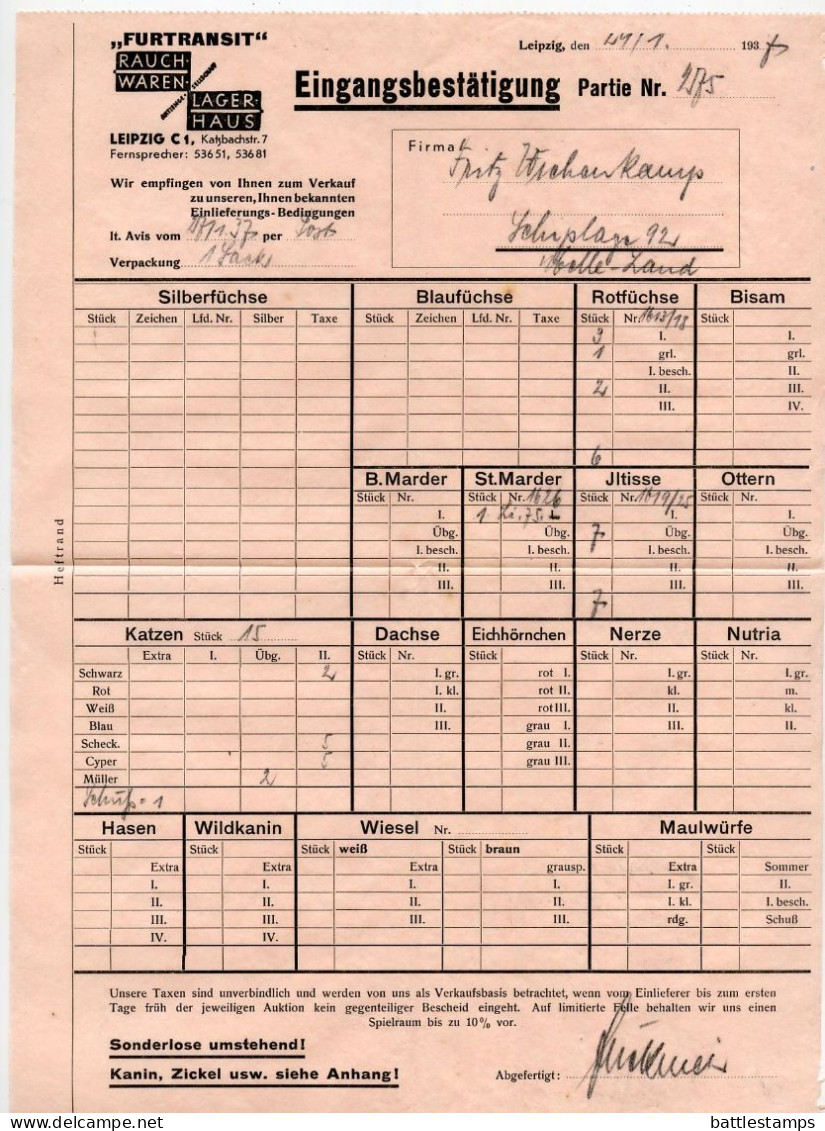 „FURTRANSIT“
RAUCH-
WAREN
LAGER-
HAUS
LEIPZIG C 1, Katzbachstr. 7
Fernsprecher: 53651, 53681
Leipzig, den 21/1. 1937
Eingangsbestätigung Partie Nr. 2575
Wir empfingen von Ihnen zum Verkauf
zu unseren, Ihnen bekannten
Einlieferungs-Bedingungen
lt. Avis vom per Post
Verpackung 1 Sack
Firma Fritz
Schiplage 92
Melle-Land
Silberfüchse Blaufüchse Rotfüchse Bisam
Stück Zeichen Lfd. Nr. Silber Taxe Stück Zeichen Lfd. Nr. Taxe Stück Nr. 1613/18 Stück
3 I. I.
1 grl. grl.
I. besch. II.
2 II. III.
III. IV.
6
B. Marder St. Marder Jltisse Ottern
Stück Nr. Stück Nr. 1626 Stück Nr. 1619/25 Stück Nr.
I. 1 I. I. I.
Übg. Übg. 7 Übg. Übg.
I. besch. I. besch. I. besch. I. besch.
II. II. II. II.
III. III. III. III.
7
Heftrand
Katzen Stück 15 Dachse Eichhörnchen Nerze Nutria
Extra I. Übg. II. Stück Nr. Stück Stück Nr. Stück Nr.
Schwarz 2 I. gr. rot I. I. gr. I. gr.
Rot I. kl. rot II. kl. m.
Weiß II. rot III. II. kl.
Blau III. grau I. III. II.
Scheck. 5 grau II.
Cyper 5 grau III.
Müller 2
Schuß = 1
Hasen Wildkanin Wiesel Nr. Maulwürfe
Stück Stück Stück weiß Stück braun Stück Stück
Extra Extra Extra grausp. Extra Sommer
I. I. I. I. I. gr. II.
II. II. II. II. I. kl. I. besch.
III. III. III. III. rdg. Schuß
IV. IV.
Unsere Taxen sind unverbindlich und werden von uns als Verkaufsbasis betrachtet, wenn vom Einlieferer bis zum ersten
Tage früh der jeweiligen Auktion kein gegenteiliger Bescheid eingeht. Auf limitierte Felle behalten wir uns einen
Spielraum bis zu 10% vor.
Sonderlose umstehend!
Kanin, Zickel usw. siehe Anhang!
Abgefertigt:
battlestamps